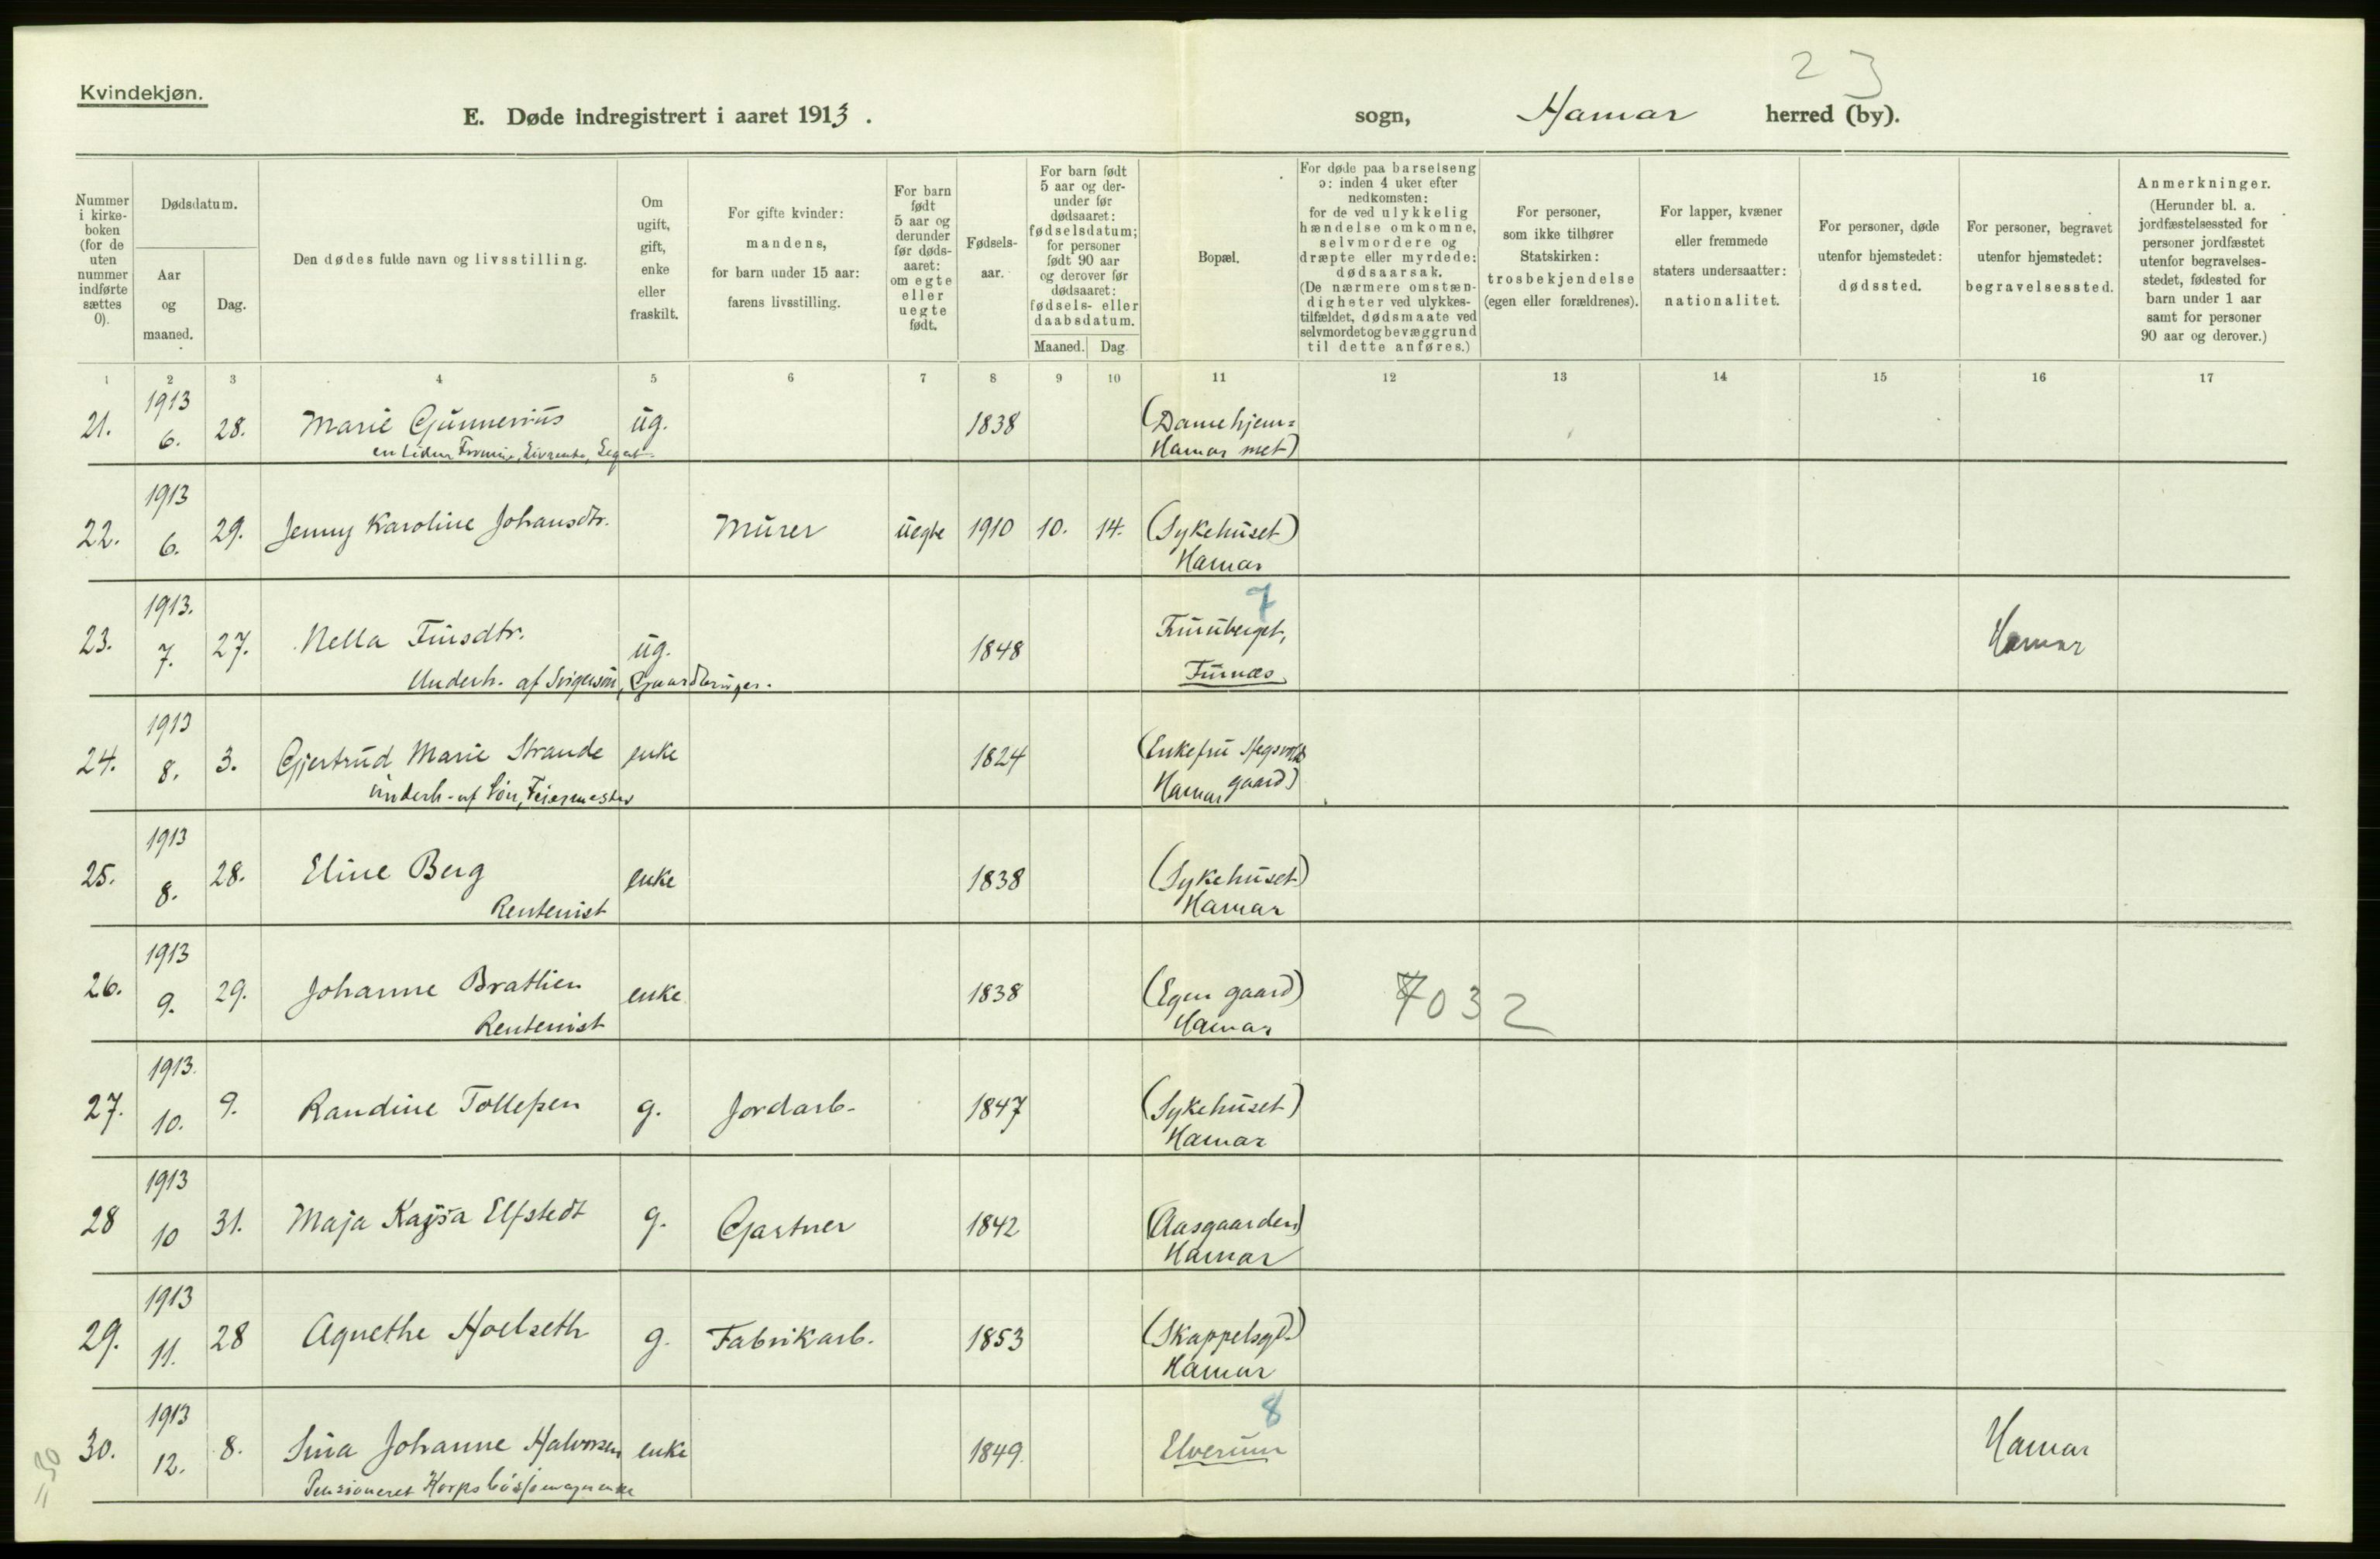 Kvindekjøn.
23
E. Døde indregistrert i aaret 1913. sogn, Hamar herred (by).
Nummer i kirke-boken (for de uten nummer indførte sættes 0).
Dødsdatum.
Aar og maaned.
Dag.
Den dødes fulde navn og livsstilling.
Om ugift, gift, enke eller fraskilt.
For gifte kvinder: mandens, for barn under 15 aar: farens livsstilling.
For barn født 5 aar og derunder før døds-aaret: om egte eller uegte født.
Fødsels-aar.
For barn født 5 aar og der-under før dødsaaret: fødselsdatum; for personer født 90 aar og derover før dødsaaret: fødsels- eller daabsdatum.
Maaned. Dag.
Bopæl.
For døde paa barselseng ɔ: inden 4 uker efter nedkomsten: for de ved ulykkelig hændelse omkomne, selvmordere og dræpte eller myrdede: dødsaarsak. (De nærmere omstæn-digheter ved ulykkes-tilfældet, dødsmaate ved selvmordet og bevæggrund til dette anføres.)
For personer, som ikke tilhører Statskirken: trosbekjendelse (egen eller forældrenes).
For lapper, kvæner eller fremmede staters undersaatter: nationalitet.
For personer, døde utenfor hjemstedet: dødssted.
For personer, begravet utenfor hjemstedet: begravelsessted.
Anmerkninger. (Herunder bl. a. jordfæstelsessted for personer jordfæstet utenfor begravelses-stedet, fødested for barn under 1 aar samt for personer 90 aar og derover.)
1 2 3 4 5 6 7 8 9 10 11 12 13 14 15 16 17
1913
21. 6. 28. Marie Gunnerius ug. 1838 (Damehjem=
Livrente, Legat. Hamar met)
1913
22. 6. 29. Jenny Karoline Johansdtr. Murer uegte 1910 10. 14. (Sykehuset)
Hamar
1913. 7
23. 7. 27. Nella Finsdtr. ug. 1848 Furuberget, Hamar
Underh. af Furnæs
1913
24. 8. 3. Gjertrud Marie Strande enke 1824 (Enkefru
underh. af Søn, Feiermester Hamar gaard)
1913
25. 8. 28. Eline Berg enke 1838 (Sykehuset)
Rentenist Hamar
1913
26. 9. 29. Johanne Brathien enke 1838 (Egen gaard) 7032
Rentenist Hamar
1913.
27. 10. 9. Randine Tollefsen g. Jordarb. 1847 (Sykehuset)
Hamar
1913
28 10 31. Maja Kajsa Elfstedt g. Gartner 1842 (Aasgaarden)
Hamar
1913
29. 11. 28 Agnethe Hoelseth g. Fabrikarb. 1853 (Skappelsgd.)
Hamar
1913 8
30. 12. 8. Sina Johanne Halvorsen enke 1849. Elverum Hamar
Pensioneret
=30